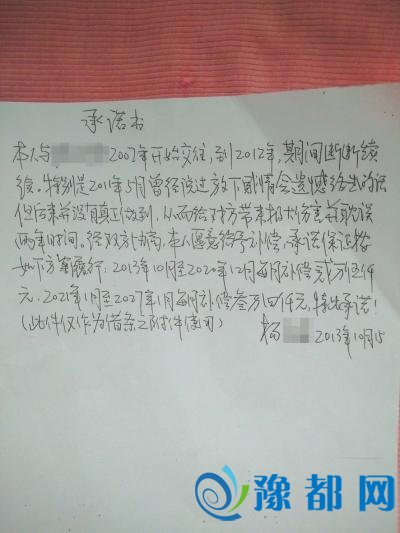 承诺书
本人与 2007年开始交往,到2012年,期间断断续
续。特别是2011年5月曾经说过放下感情会遗憾终生的话
但后来并没有真正做到,从而给对方带来极大伤害并耽误
两年时间。经双方计商,本人愿意给予补偿,承诺保证按
如下方案履行:2013年10月至2020年12月每月补偿贰万伍仟
元,2021年1月至2027年1月每月补偿叁万四仟元,特此承诺!
(此件仅作为借条之附件使用)
杨 2013年10月15
豫都网